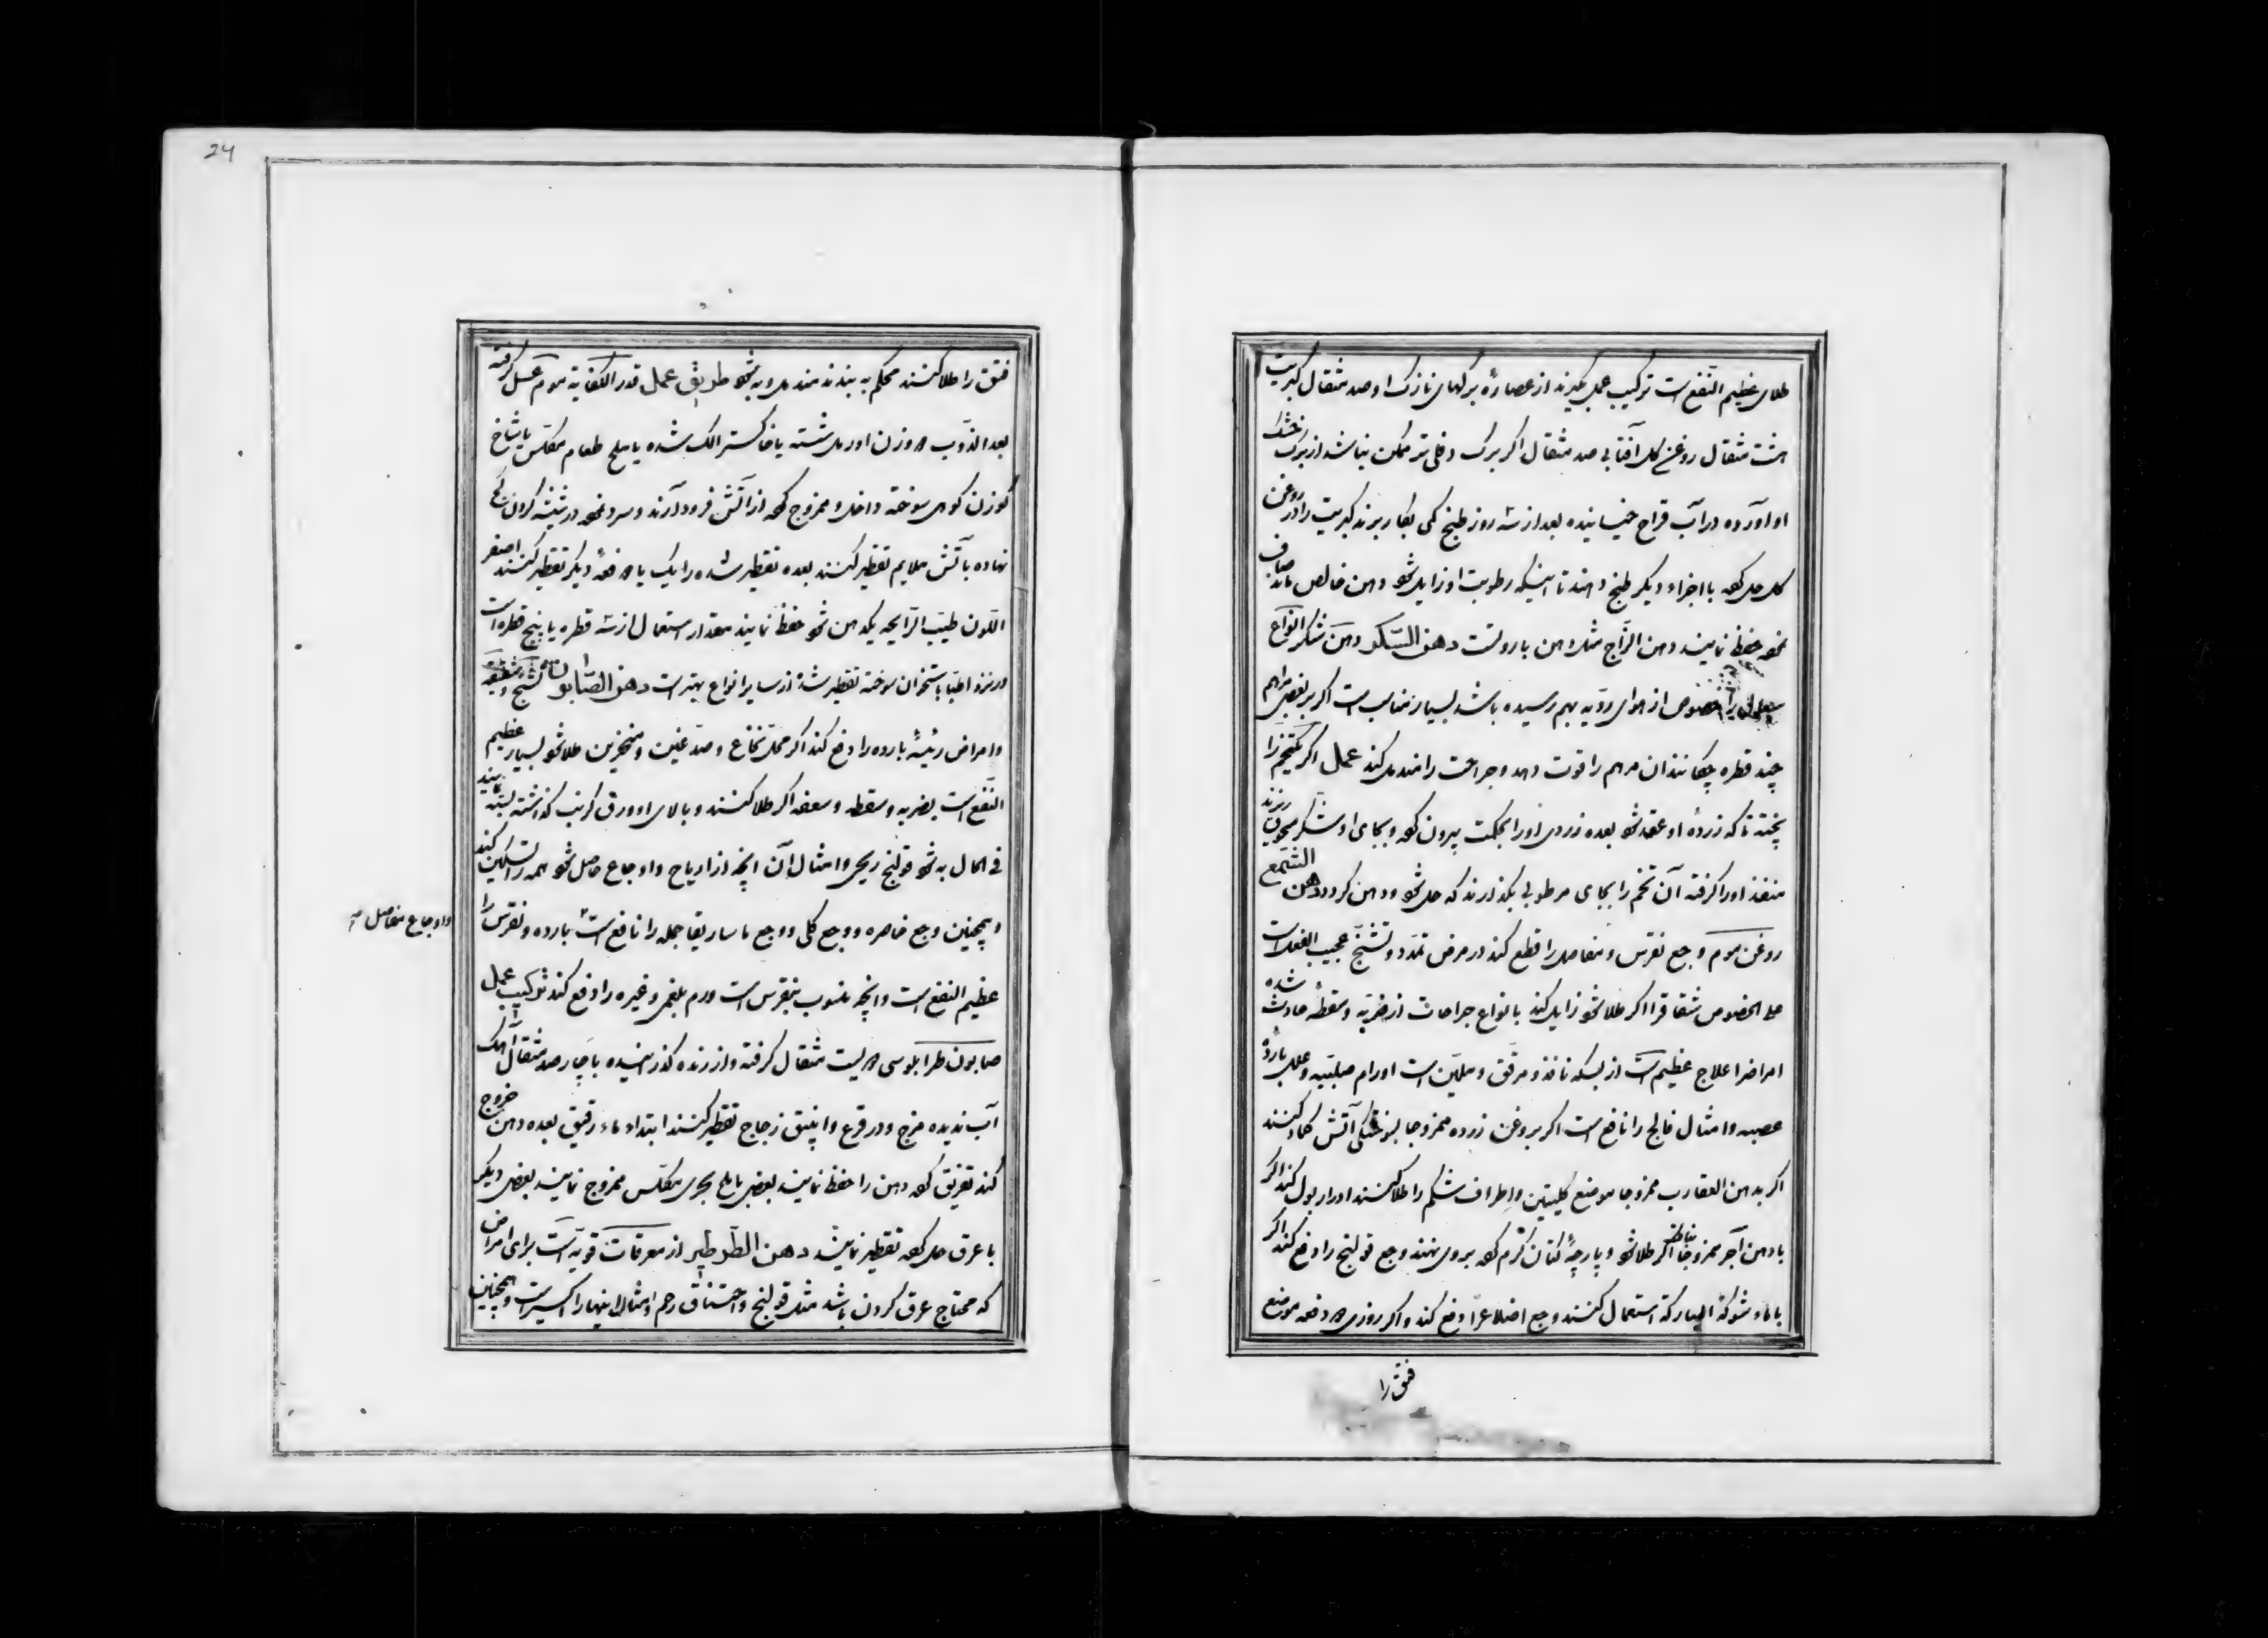 طلای عظیم النفع است ترکیب عمل بگیرند از عصاره برگهای نازک او صد مثقال کبریت
هشت مثقال روغن گل آفتابی صد مثقال اگر برگ دفلی تر ممکن نباشد از برگ خشک
او آورده در آب قراح خیسانیده بعد از سه روز طبخ کمی بکار برند کبریت را در روغن
گل حل کرده با اجزاء دیگر طبخ دهند تا اینکه رطوبت او زایل شود دهن خالص ماند صاف
نموده حفظ نمایند دهن الزاج مثل دهن باروتست دهن السکر دهن شکر انواع
را خصوص از هوای ردیه بهم رسیده باشد بسیار مناسب است اگر بر بعضی مراهم
چند قطره چکانند ان مرهم را قوت دهد و جراحت را مندمل کند عمل اگر یکتخم را
پخته تا که زرده او عقد شود بعده زردی اورا بحکمت بیرون کرده و بجای او شکر مسحوق ریزند
منفذ اورا گرفته آن تخم را بجای مرطوبی بگذارند که حل شود و دهن گردد دهن الشمع
روغن موم وجع نقرس و مفاصل را قطع کند در مرض تمدد و تشنج عجیب الفعل است
علی الخصوص شقاق را اگر طلا شود زایل کند بانواع جراحات از ضربه و سقطه حادث شده
امراضرا علاج عظیم است از بسکه نافذ و مرقق و ملین است اورام صلبیه و علل بارده
عصبه و امثال فالج را نافع است اگر بروغن زرده ممزوجا بسوختگی آتش کماد کنند
اگر بدهن العقارب ممزوجا موضع کلیتین و اطراف شکم را طلا کنند ادرار بول کند اگر
با دهن آجر ممزوجا اگر طلا شود و پارچه کتان گرم کرده بروی نهند وجع قولنج را دفع کند اگر
با ماء شوکة المبارکة استعمال کنند وجع اضلاع را دفع کند و اگر روزی دو دفعه موضع
فتق را
24
فتق را طلا کنند محکم به بندند مندمل و به شود طریق عمل قدر الکفایة موم عسل گرفته
بعد الذوب دو وزن اورمل شسته یا خاکستر الک شده یا ملح طعام مکلس یا شاخ
گوزن کوهی سوخته داخل و ممزوج کرده از آتش فرود آرند و سرد نموده در شیشه گردن کج
نهاده بآتش ملایم تقطیر کنند بعده تقطیر شده را یک یا دو دفعه دیگر تقطیر کنند اصفر
اللون طیب الرایحه یکدهن شود حفظ نمایند مقدار استعمال از سه قطره یا پنج قطره است
و در نزد اطبا باستخوان سوخته تقطیر شده از سایر انواع بهتر است دهن الصابون تشنج و شقیقه
و امراض رئیسه بارده را دفع کند اگر محل نخاع و صدغین و منخرین طلا شود بسیار عظیم
النفع است بضربه و سقطه و سعفه اگر طلا کنند و بالای او ورق کرنب گذاشته بسته نمایند
فی الحال به شود قولنج ریحی و امثال آن انچه از اریاح و اوجاع حاصل شود همه را تسکین کند
و همچنین وجع خاصره و وجع کلی و وجع ماساریقا جمله را نافع است بارده و نقرس را
و اوجاع مفاصل
عظیم النفع است و انچه منسوب بنقرس است ورم بلغمی و غیره را دفع کند ترکیب عمل
صابون طرابلوسی دویست مثقال گرفته و از رنده گذرانیده با چارصد مثقال آهک
آب ندیده مزج و در قرع و انبیق زجاج تقطیر کنند ابتداء ماء رقیق بعده دهن خروج
کند تفریق کرده دهن را حفظ نمایند بعضی با ملح بحری مکلس ممزوج نمایند بعضی دیگر
با عرق حل کرده تقطیر نمایند دهن الطرطیر از معرقات قویه است برای امراض
که محتاج عرق کردن باشد مثل قولنج و اختناق رحم و امثال اینها را اکسیر است و همچنین